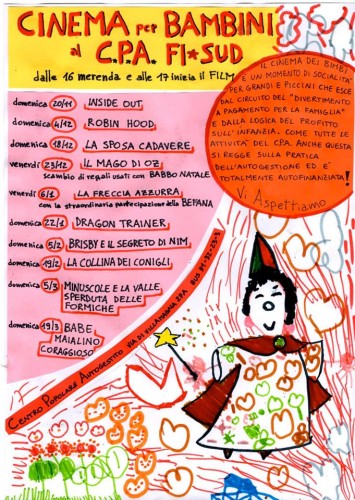 CINEMA PER BAMBINI
al C.P.A. FI★SUD
dalle 16 merenda e alle 17 inizia il FILM
domenica 20/11 INSIDE OUT
domenica 4/12 ROBIN HOOD
domenica 18/12 LA SPOSA CADAVERE
venerdì 23/12 IL MAGO DI OZ
scambio di regali usati con BABBO NATALE
venerdì 6/1 LA FRECCIA AZZURRA
con la straordinaria partecipazione della BEFANA
domenica 22/1 DRAGON TRAINER
domenica 5/2 BRISBY E IL SEGRETO DI NIM
domenica 19/2 LA COLLINA DEI CONIGLI
domenica 5/3 MINUSCULE E LA VALLE
SPERDUTA DELLE
FORMICHE
domenica 19/3 BABE
MAIALINO
CORAGGIOSO
IL CINEMA DEI BIMBI
E' UN MOMENTO DI SOCIALITA'
PER GRANDI E PICCINI CHE ESCE
DAL CIRCUITO DEL "DIVERTIMENTO
A PAGAMENTO PER LA FAMIGLIA"
E DALLA LOGICA DEL PROFITTO
SULL'INFANZIA. COME TUTTE LE
ATTIVITA' DEL CPA. ANCHE QUESTA
SI REGGE SULLA PRATICA
DELL'AUTOGESTIONE ED E'
TOTALMENTE AUTOFINANZIATA!
Vi Aspettiamo
CENTRO POPOLARE AUTOGESTITO VIA DI VILLAMAGNA 27A BUS